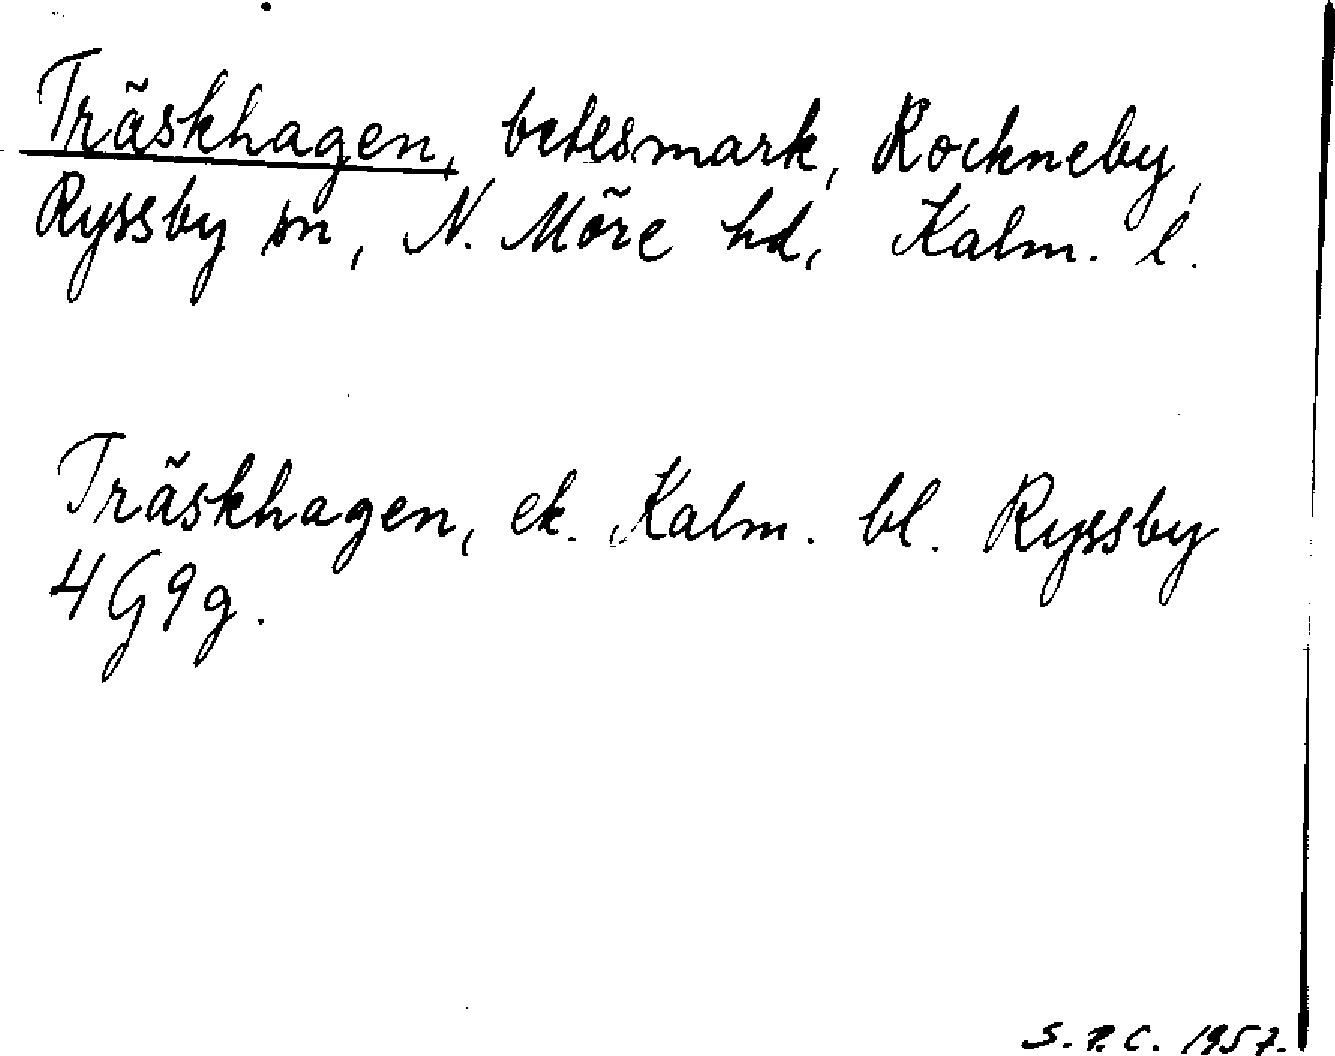 Träskhagen, betesmark, Rockneby,
Ryssby sn, N. Möre hd, Kalm. l.
Träskhagen, ek. Kalm. bl. Ryssby
4G9g.
S.P.C. 1957.